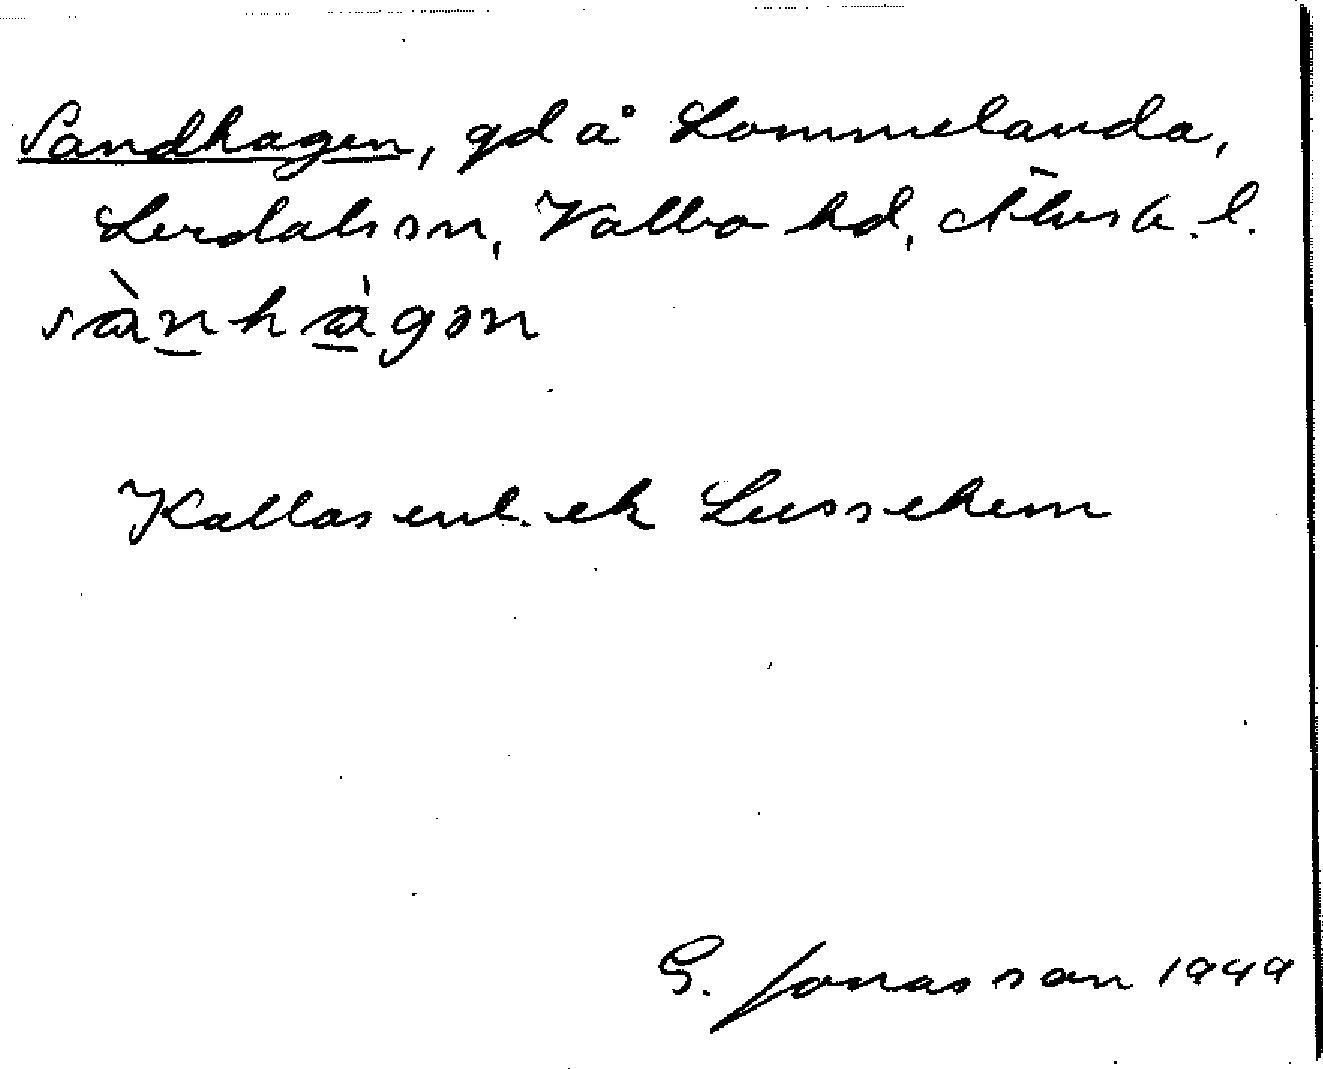 Sandhagen, gd å Lommelanda,
Lerdals sn, Valbo hd, Älvsb. l.
sànhàgən
Kallas enl. ek Lussehem
G. Jonasson 1949